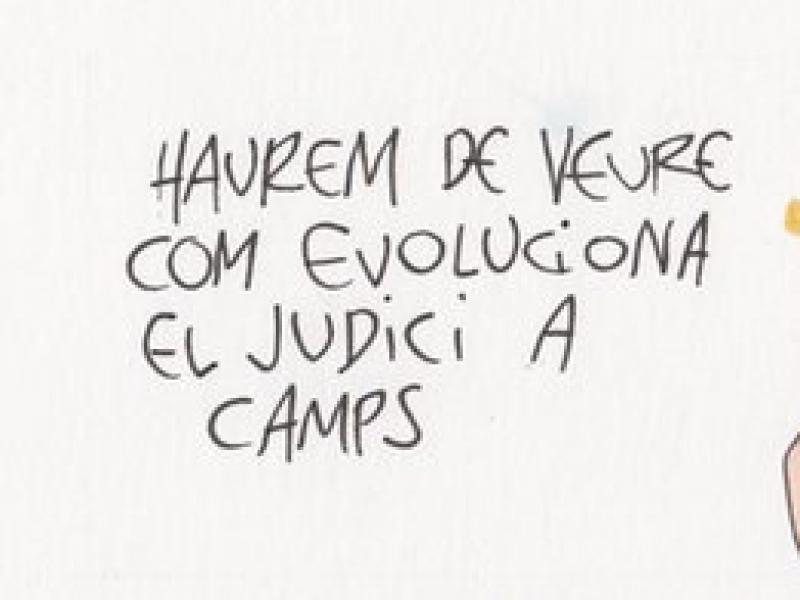 HAUREM DE VEURE
COM EVOLUCiONA
EL JUDiCi A
CAMPS